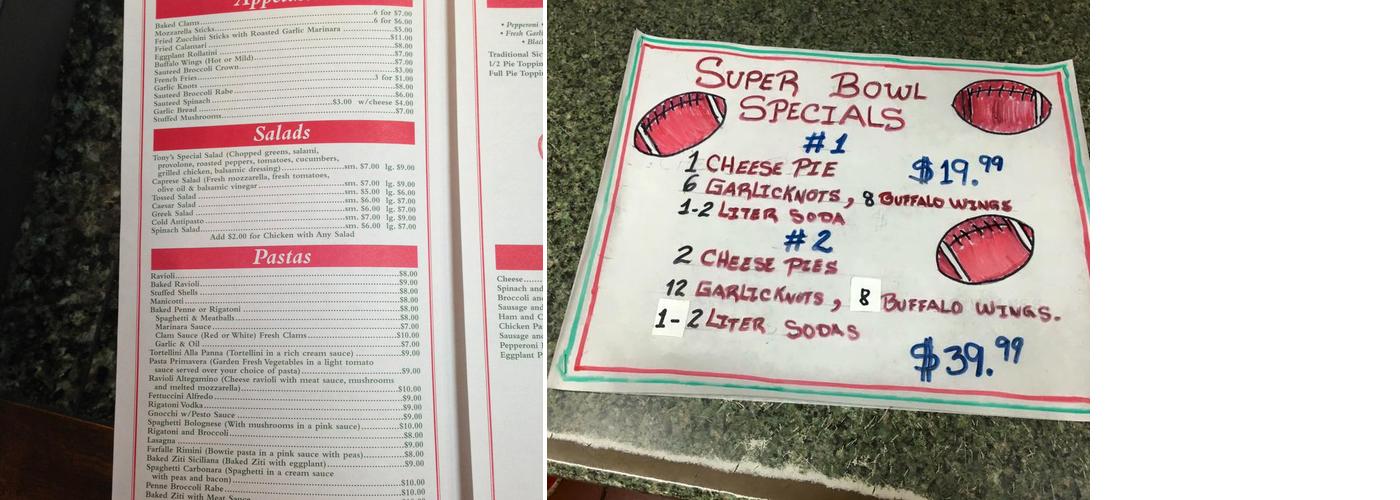 Appetizers
Baked Clams 6 for $7.00
Mozzarella Sticks 6 for $6.00
Fried Zucchini Sticks with Roasted Garlic Marinara $5.00
Fried Calamari $11.00
Eggplant Rollatini $8.00
Buffalo Wings (Hot or Mild) $7.00
Sauteed Broccoli Crown $7.00
French Fries $3.00
Garlic Knots 3 for $1.00
Sauteed Broccoli Rabe $8.00
Sauteed Spinach $6.00
Garlic Bread $3.00 w/cheese $4.00
Stuffed Mushrooms $7.00
Salads
Tony's Special Salad (Chopped greens, salami,
provolone, roasted peppers, tomatoes, cucumbers,
grilled chicken, balsamic dressing) sm. $7.00 lg. $9.00
Caprese Salad (Fresh mozzarella, fresh tomatoes,
olive oil & balsamic vinegar sm. $7.00 lg. $9.00
Tossed Salad sm. $5.00 lg. $6.00
Caesar Salad sm. $6.00 lg. $7.00
Greek Salad sm. $6.00 lg. $7.00
Cold Antipasto sm. $7.00 lg. $9.00
Spinach Salad sm. $6.00 lg. $7.00
Add $2.00 for Chicken with Any Salad
Pastas
Ravioli $8.00
Baked Ravioli $9.00
Stuffed Shells $8.00
Manicotti $8.00
Baked Penne or Rigatoni $8.00
Spaghetti & Meatballs $8.00
Marinara Sauce $7.00
Clam Sauce (Red or White) Fresh Clams $10.00
Garlic & Oil $7.00
Tortellini Alla Panna (Tortellini in a rich cream sauce) $9.00
Pasta Primavera (Garden Fresh Vegetables in a light tomato
sauce served over your choice of pasta) $9.00
Ravioli Altegamino (Cheese ravioli with meat sauce, mushrooms
and melted mozzarella) $10.00
Fettuccini Alfredo $9.00
Rigatoni Vodka $9.00
Gnocchi w/Pesto Sauce $9.00
Spaghetti Bolognese (With mushrooms in a pink sauce) $10.00
Rigatoni and Broccoli $8.00
Lasagna $9.00
Farfalle Rimini (Bowtie pasta in a pink sauce with peas) $8.00
Baked Ziti Siciliana (Baked Ziti with eggplant) $9.00
Spaghetti Carbonara (Spaghetti in a cream sauce
with peas and bacon) $10.00
Penne Broccoli Rabe $10.00
Baked Ziti with Meat Sauce
• Pepperoni •
• Fresh Garlic
Traditional Sic
1/2 Pie Toppin
Full Pie Toppin
Cheese
Spinach and
Broccoli and
Sausage and
Ham and C
Chicken Pa
Sausage and
Pepperoni
Eggplant P
SUPER BOWL
SPECIALS
#1
1 CHEESE PIE $19.99
6 GARLICKNOTS, 8 BUFFALO WINGS
1-2 LITER SODA
#2
2 CHEESE PIES
12 GARLICKNOTS, 8 BUFFALO WINGS.
1-2 LITER SODAS
$39.99